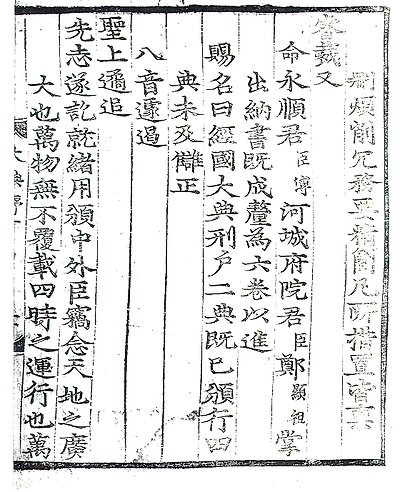 刪煩削冗務要精簡凡所措置皆稟
睿裁又
命永順君臣溥河城府院君臣鄭顯祖掌
出納書既成釐為六卷以進
賜名曰經國大典刑户二典既已頒行四
典未及讎正
八音遽遏
聖上遹追
先志遂訖就緒用頒中外臣竊念天地之廣
大也萬物無不覆載四時之運行也萬
大典序